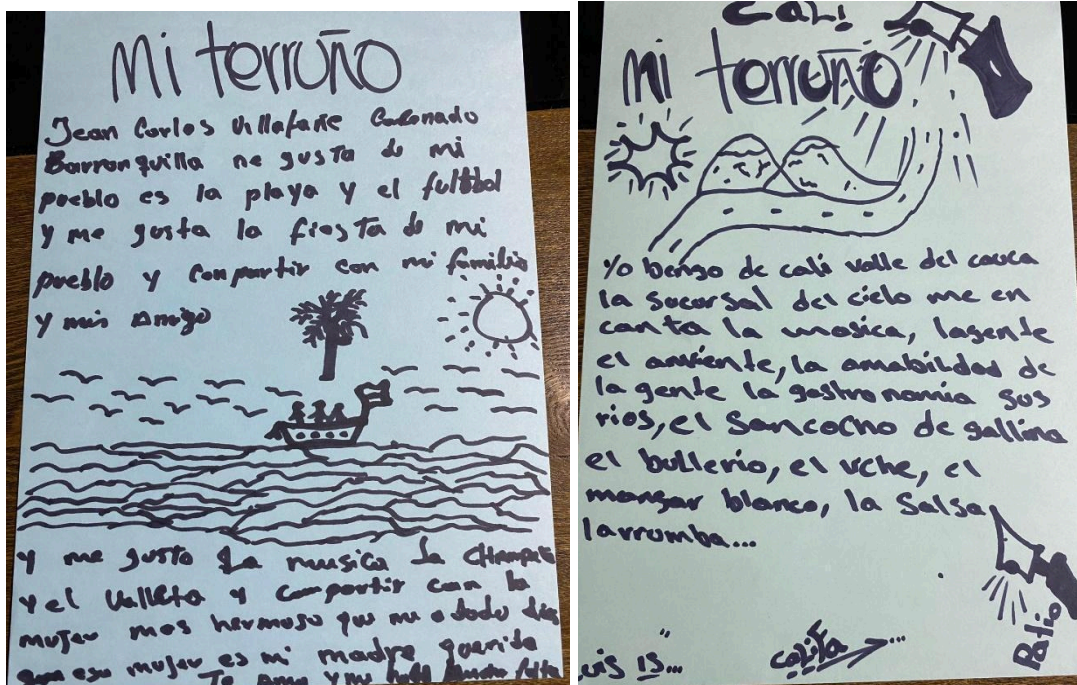 Mi terruño
Jean Carlos Villafañe Coronado
Barranquilla me gusta de mi
pueblo es la playa y el fultbol
y me gusta la fiesta de mi
pueblo y Compartir con mi familia
y mis Amigo
y me gusta La musica La Champeta
y el Valleta y Compartir con la
mujer mas hermosa que me a dado dios
esa mujer es mi madre querida
Te Amo y me falta
Cali
Mi terruño
Yo bengo de cali valle del cauca
la sucursal del cielo me en
canta la musica, lagente
el anviente, la amabilidad de
la gente la gastronomia sus
rios, el Sancocho de gallina
el bullerio, el vche, el
mangar blanco, la Salsa
larrumba...
Patio